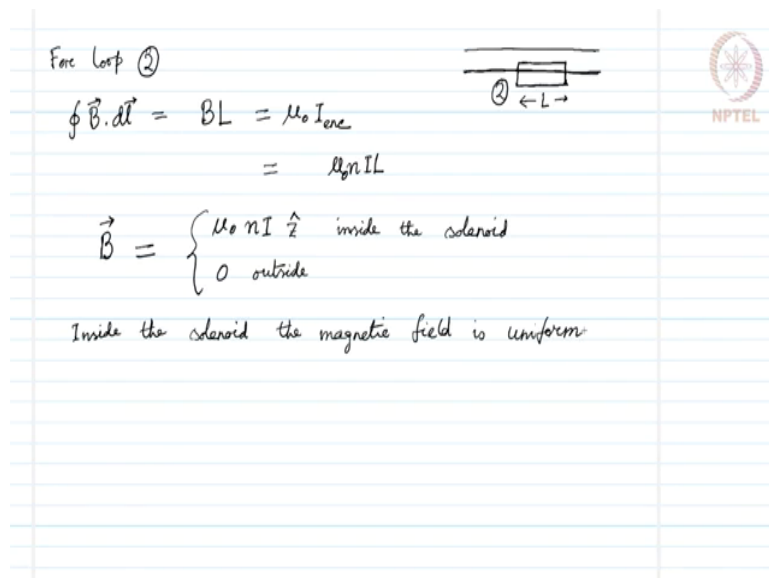 For loop ②
② ← L →
NPTEL
∮ B⃗ . dl⃗ = BL = μ₀ I enc
= μ₀ n I L
B⃗ = { μ₀ n I ẑ inside the solenoid
0 outside
Inside the solenoid the magnetic field is uniform.